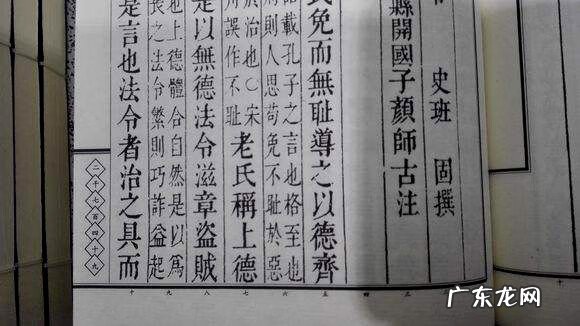 史班 固撰
縣開國子顏師古注
民免而無耻導之以德齊
載孔子之言也格至也
則人思苟免不耻於惡
於治也○宋
所誤作不耻
老氏稱上德
是以無德法令滋章盜賊
也上德體合自然是以爲
喪之法令繁則巧詐益起
是言也法令者治之具而
二千七百四十九
三
四
五
六
七
八
九
十
广东龙网